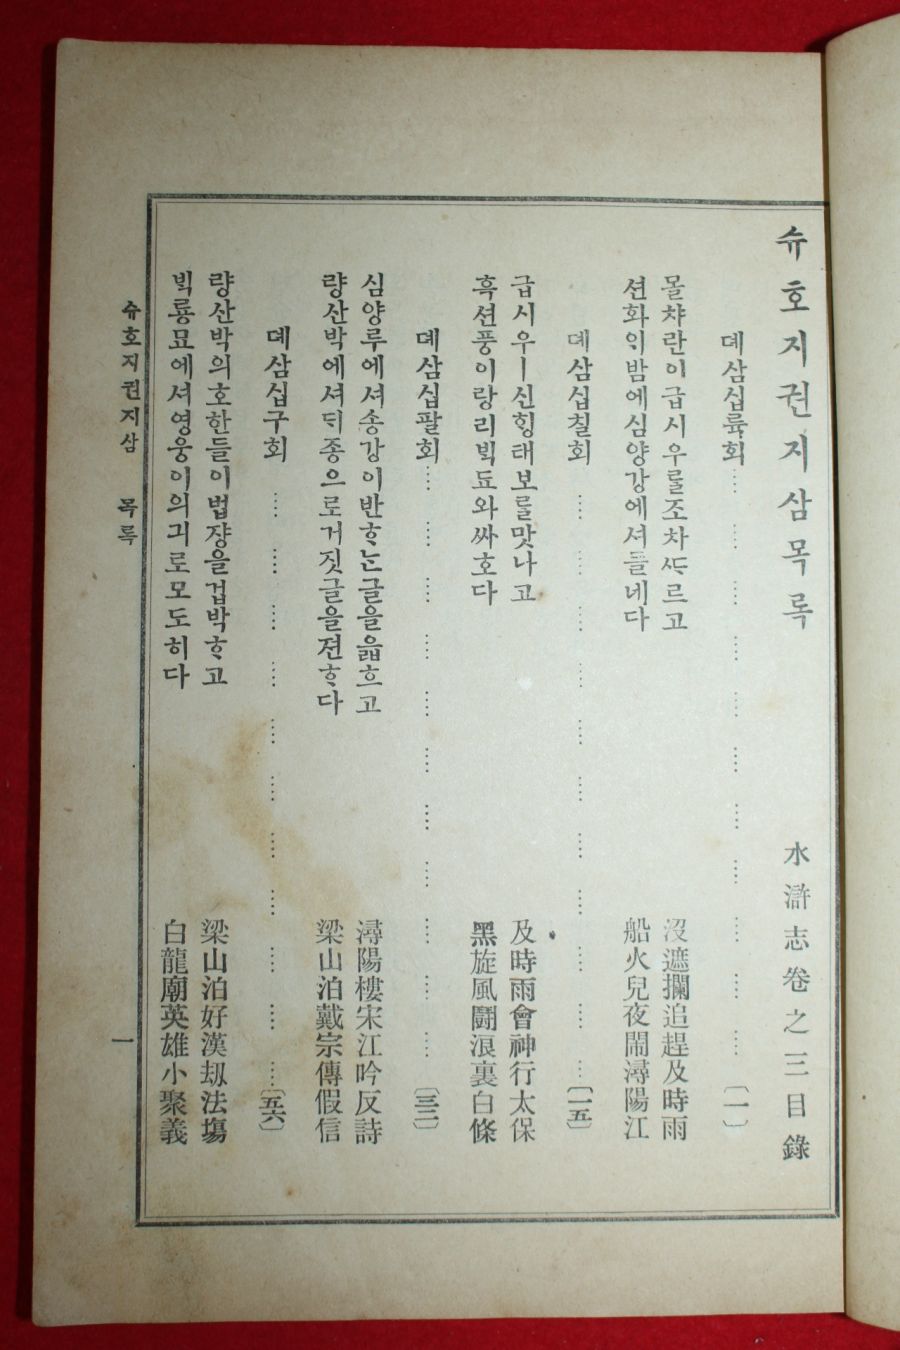 슈호지권지삼목록 水滸志卷之三目錄
뎨삼십륙회 〔一〕
몰챠란이급시우를조차ᄯᆞ르고 沒遮攔追趕及時雨
션화ᄋᆡ밤에심양강에셔들네다 船火兒夜鬧潯陽江
뎨삼십칠회 〔一五〕
급시우ㅣ신ᄒᆡᆼ태보를맛나고 及時雨會神行太保
흑션풍이랑리ᄇᆡᆨ됴와싸호다 黑旋風鬪浪裏白條
뎨삼십팔회 〔三二〕
심양루에셔송강이반ᄒᆞᄂᆞᆫ글을읇흐고 潯陽樓宋江吟反詩
량산박에셔ᄃᆡ종으로거짓글을젼ᄒᆞ다 梁山泊戴宗傳假信
뎨삼십구회 〔五六〕
량산박의호한들이법쟝을겁박ᄒᆞ고 梁山泊好漢刼法塲
ᄇᆡᆨ룡묘에셔영웅이의긔로모도히다 白龍廟英雄小聚義
슈호지권지삼 목록 一